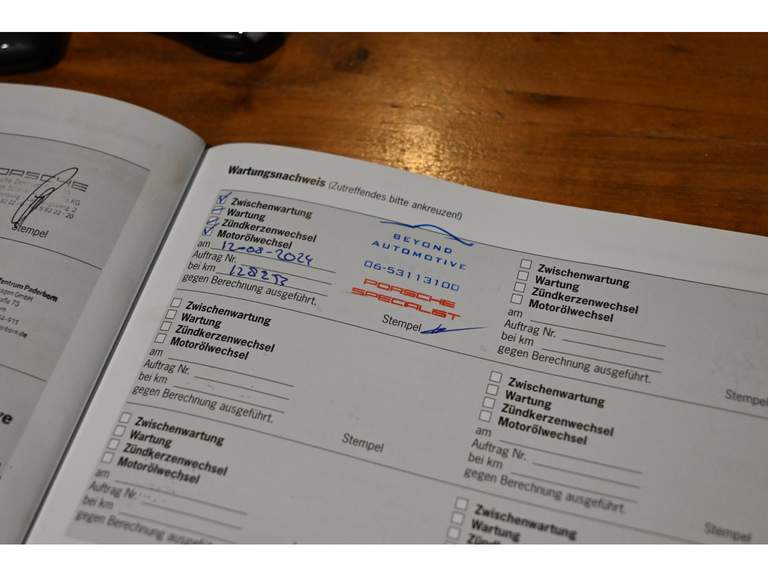 PORSCHE
Stempel
Zentrum Paderborn
Wartungsnachweis (Zutreffendes bitte ankreuzen!)
Zwischenwartung
Wartung
Zündkerzenwechsel
Motorölwechsel
am 12-08-2024
Auftrag Nr.
bei km 128253
gegen Berechnung ausgeführt.
BEYOND
AUTOMOTIVE
06-53113100
PORSCHE
SPECIALIST
Stempel
Zwischenwartung
Wartung
Zündkerzenwechsel
Motorölwechsel
am
Auftrag Nr.
bei km
gegen Berechnung ausgeführt.
Stempel
Zwischenwartung
Wartung
Zündkerzenwechsel
Motorölwechsel
am
Auftrag Nr.
bei km
gegen Berechnung ausgeführt.
Stempel
Zwischenwartung
Wartung
Zündkerzenwechsel
Motorölwechsel
am
Auftrag Nr.
bei km
gegen Berechnung ausgeführt.
Stempel
Zwischenwartung
Wartung
Zündkerzenwechsel
Motorölwechsel
am
Auftrag Nr.
bei km
gegen Berechnung ausgeführt.
Stempel
Zwischenwartung
Wartung